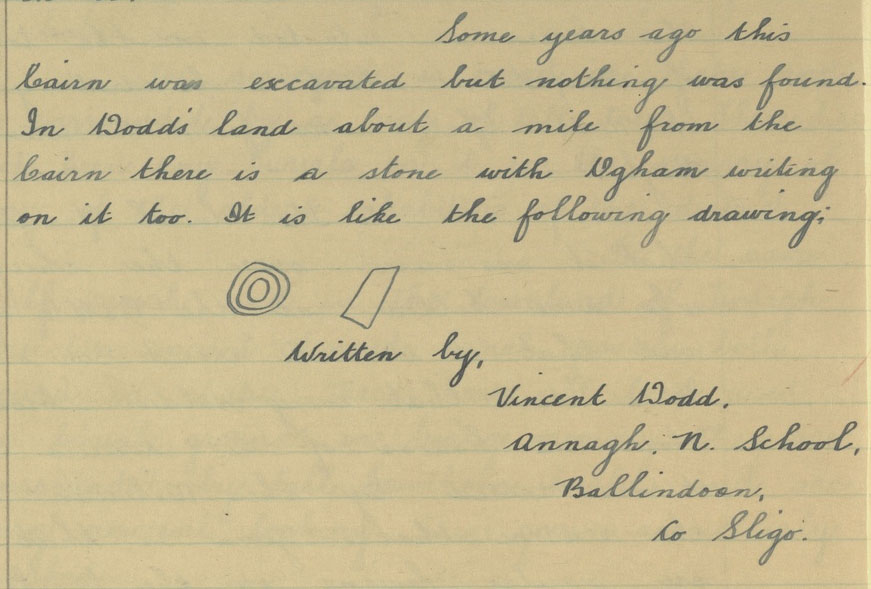 Some years ago this
Cairn was excavated but nothing was found.
In Dodd's land about a mile from the
Cairn there is a stone with Ogham writing
on it too. It is like the following drawing;
Written by,
Vincent Dodd.
Annagh. N. School,
Ballindoon,
Co Sligo.